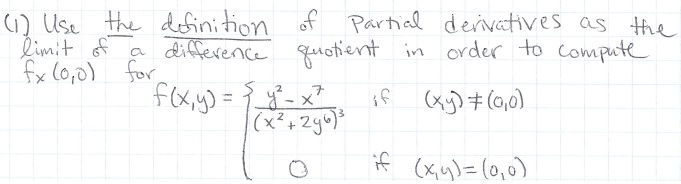 (1) Use the definition of Partial derivatives as the
limit of a difference quotient in order to compute
fx (0,0) for
f(x,y) = { y² - x⁷ / (x² + 2y⁶)³ if (x,y) ≠ (0,0)
0 if (x,y) = (0,0)